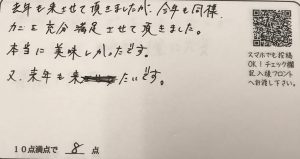 去年も来させて頂きましたが、今年も同様
カニを充分満足させて頂きました。
本当に美味しかったです。
又、来年も来たいです。
10点満点で 8 点
スマホでも投稿
OK！チェック欄
記入後フロント
へお渡し下さい。